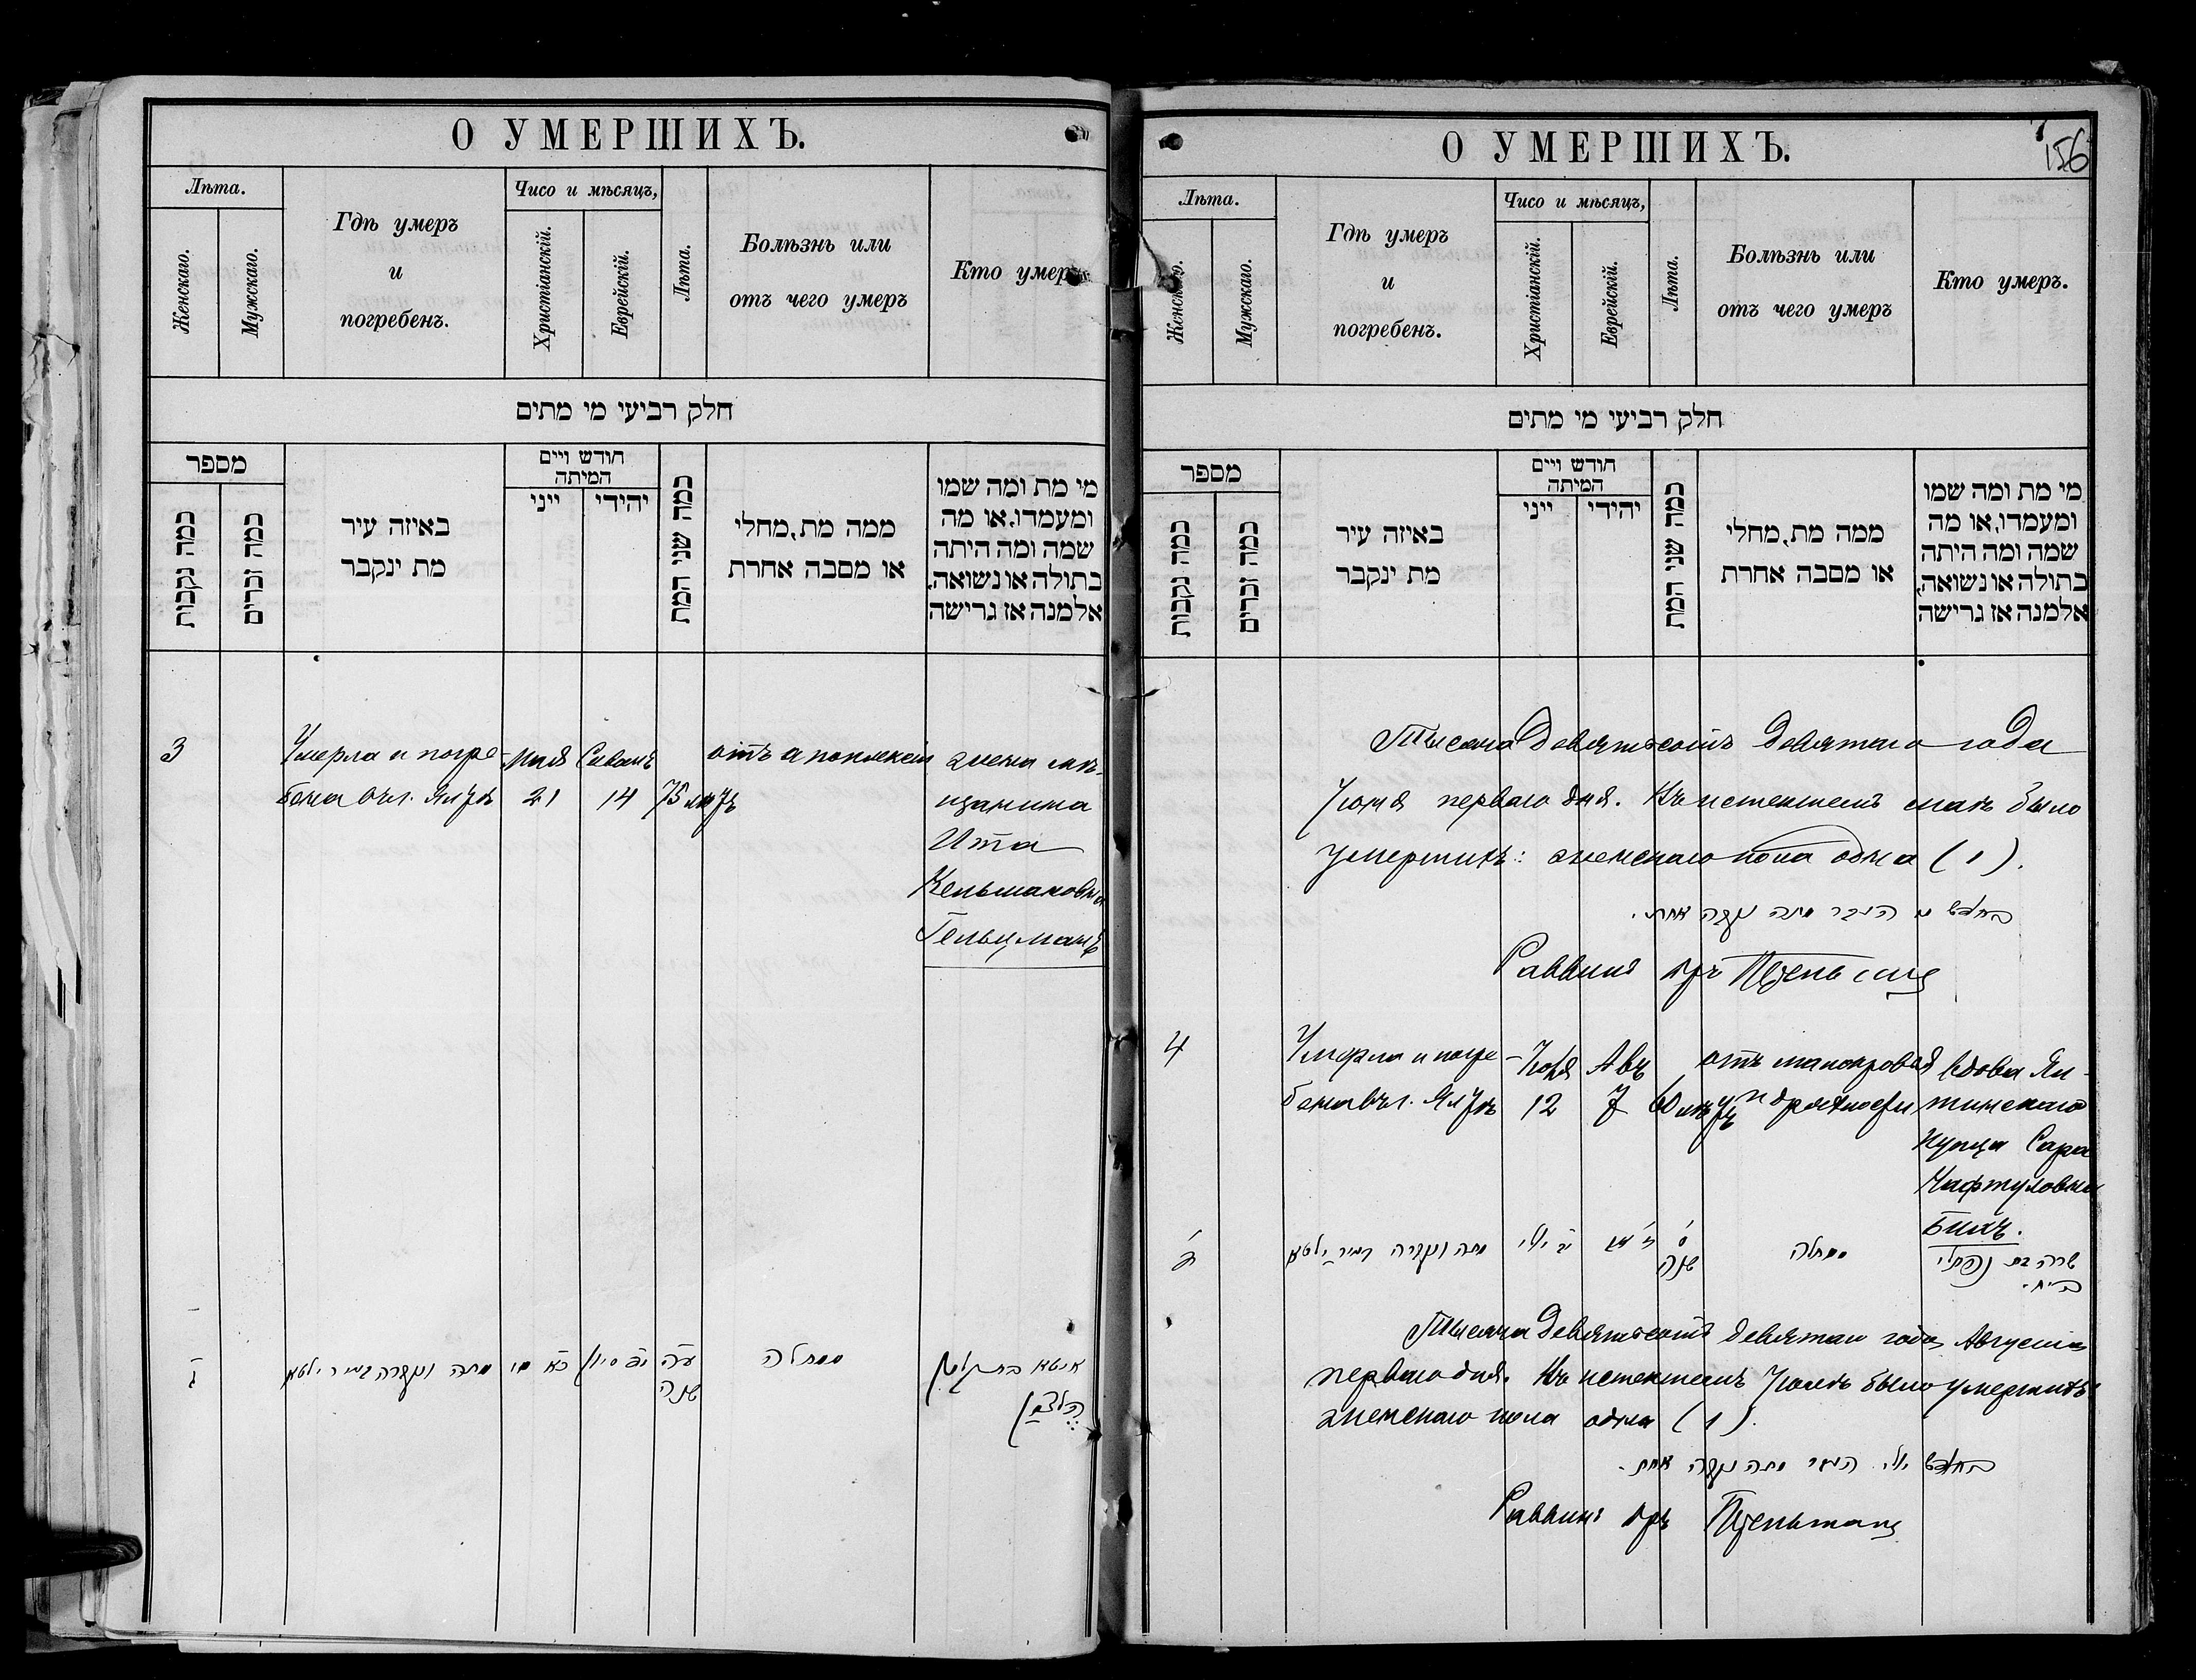 О УМЕРШИХЪ.
Лѣта.
Женскаго.
Мужскаго.
Гдѣ умеръ
и
погребенъ.
Чисо и мѣсяцъ,
Христіанскій.
Еврейскій.
Лѣта.
Болѣзнь или
отъ чего умеръ
Кто умеръ.
חלק רביעי מי מתים
מספר
כמה נקבות
כמה זכרים
באיזה עיר
מת ינקבר
חודש ויים
המיתה
ייני
יהידי
כמה שני המת
ממה מת, מחלי
או מסבה אחרת
מי מת ומה שמו
ומעמדו, או מה
שמה ומה היתה
בתולה או נשואה,
אלמנה אז גרישה
3
Умерла и погре-
бена въ г. Ялтѣ
Мая
21
Сивонъ
14
75 лѣтъ
отъ апоплексіи
жена мѣ-
щанина
Ита
Кельмановна
Гельцманъ
ג
מתה ונקברה בעיר ילטא
כא מי
יד סיון
עה
שנה
ממחלה
איטא בת קלמן
העלצמן
О УМЕРШИХЪ.
7
156
Лѣта.
Женскаго.
Мужскаго.
Гдѣ умеръ
и
погребенъ.
Чисо и мѣсяцъ,
Христіанскій.
Еврейскій.
Лѣта.
Болѣзнь или
отъ чего умеръ
Кто умеръ.
חלק רביעי מי מתים
מספר
כמה נקבות
כמה זכרים
באיזה עיר
מת ינקבר
חודש ויים
המיתה
ייני
יהידי
כמה שני המת
ממה מת, מחלי
או מסבה אחרת
מי מת ומה שמו
ומעמדו, או מה
שמה ומה היתה
בתולה או נשואה,
אלמנה אז גרישה
Тысяча девятьсотъ девятаго года
Іюня перваго дня. Въ истекшемъ маѣ было
умершихъ: женскаго пола одна (1).
בחדש מי העבר מתה נקבה אחת.
Раввинъ
4
Умерла и погре-
бена въ г. Ялтѣ
Іюля
12
Авъ
7
60 лѣтъ
отъ малокровія
и дряхлости
вдова Ял-
тинскаго
купца Сара
Нафтуловна
Бихъ.
ד
מתה ונקברה בעיר ילטא
יב יולי
ז אב
ס
שנה
ממחלה
שרה בת נפתלי
ביח.
Тысяча девятьсотъ девятаго года Августа
перваго дня. Въ истекшемъ Іюлѣ было умершихъ
женскаго пола одна (1).
בחדש יולי העבר מתה נקבה אחת.
Раввинъ